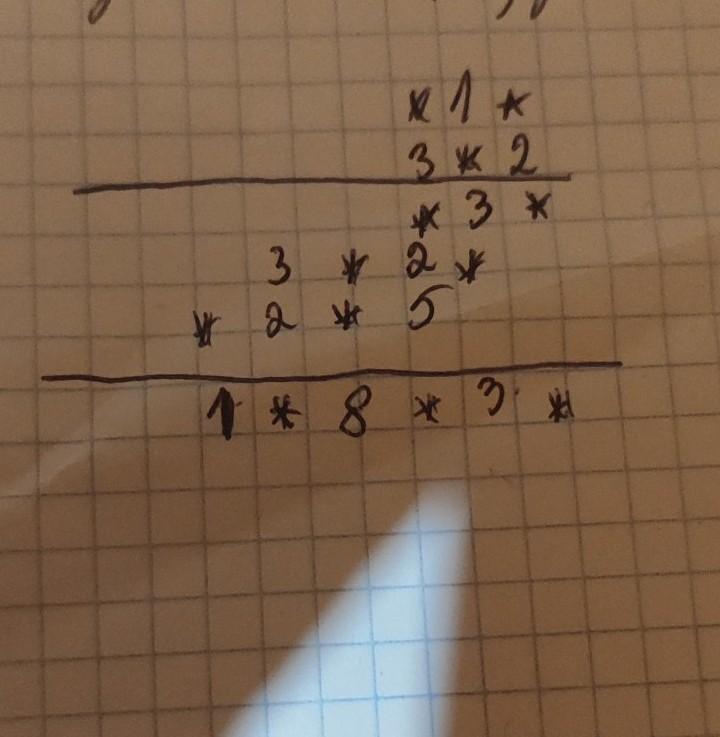 * 1 *
3 * 2
* 3 *
3 * 2 *
* 2 * 5
1 * 8 * 3 *